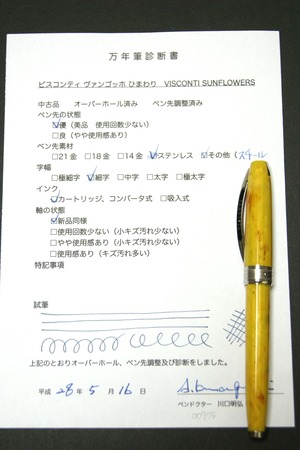 万年筆診断書
ビスコンティ ヴァンゴッホ ひまわり　VISCONTI SUNFLOWERS
中古品　オーバーホール済み　ペン先調整済み
ペン先の状態
☑優（美品　使用回数少ない）
□良（やや使用感あり）
ペン先素材
□21金　□18金　□14金　☑ステンレス　☑その他（スチール
字幅
□極細字　☑細字　□中字　□太字　□極太字
インク
☑カートリッジ、コンバータ式　□吸入式
軸の状態
☑新品同様
□使用回数少ない（小キズ汚れ少ない）
□やや使用感あり（小キズ汚れ少ない）
□使用感あり（キズ汚れ多い）
特記事項
試筆
上記のとおりオーバーホール、ペン先調整及び診断をしました。
平成 28 年 5 月 16 日
ペンドクター　川口明弘